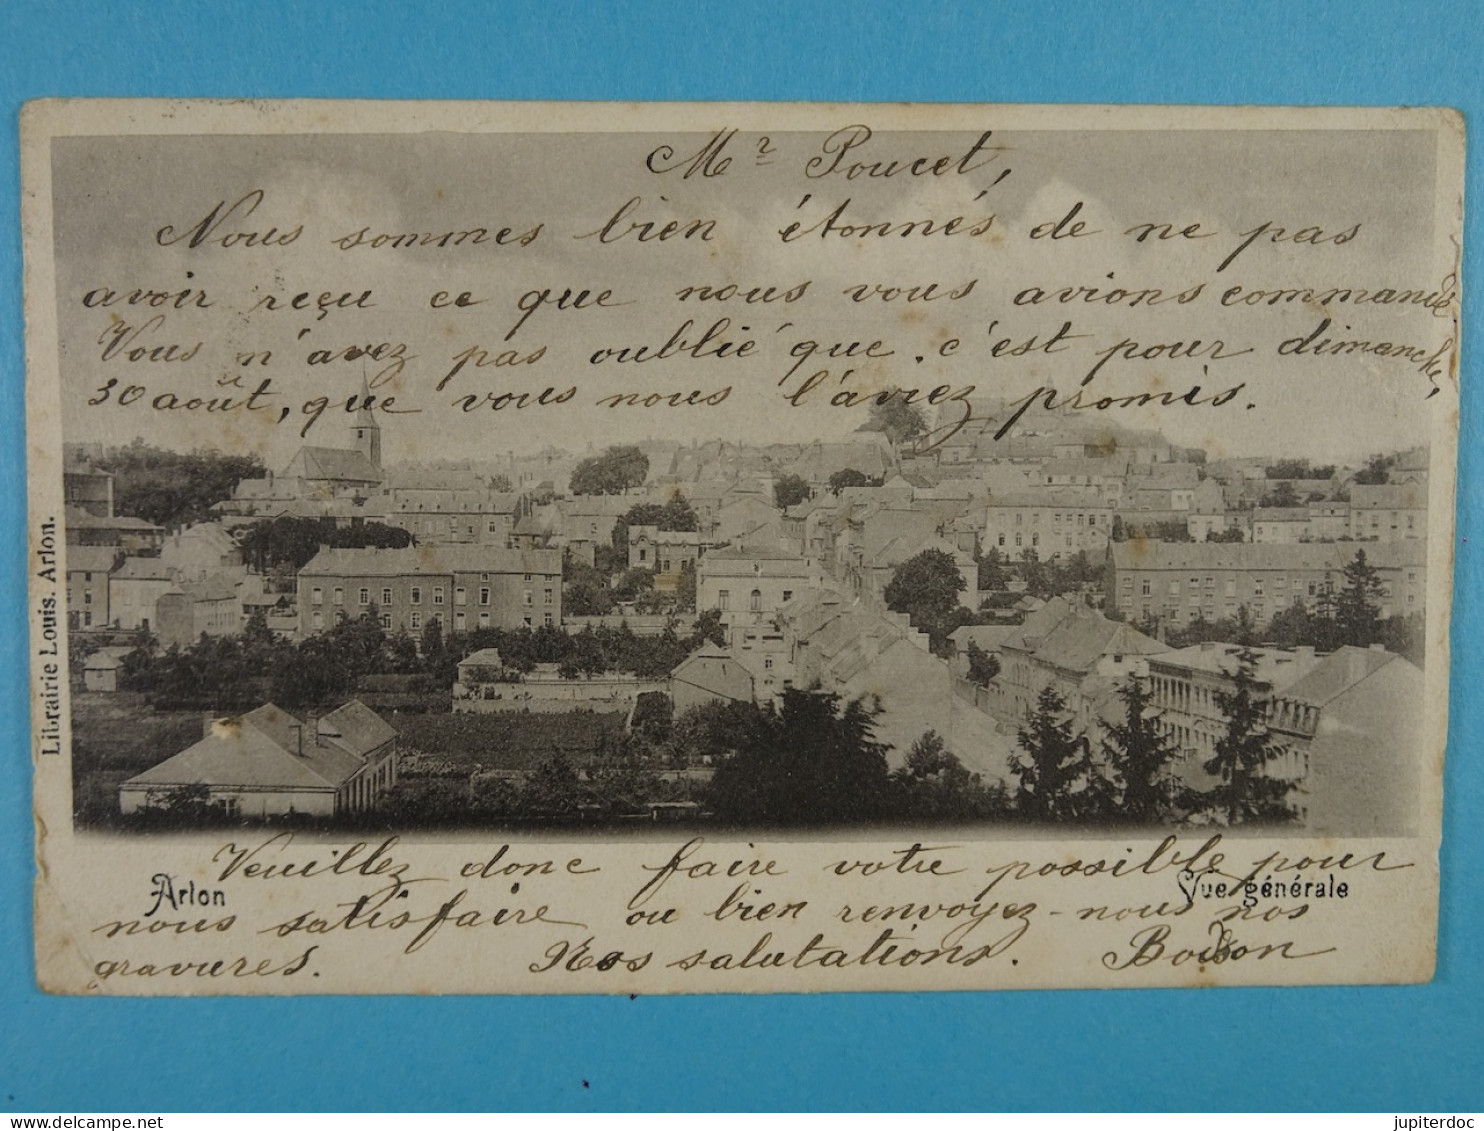 Mr Poucet,
Nous sommes bien étonnés de ne pas
avoir reçu ce que nous vous avions commandé
Vous n'avez pas oublié que c'est pour dimanche,
30 août, que vous nous l'aviez promis.
Librairie Louis. Arlon.
Arlon
Vue générale
Veuillez donc faire votre possible pour
nous satisfaire ou bien renvoyez-nous nos
gravures. Nos salutations.
delcampe.net
jupiterdoc